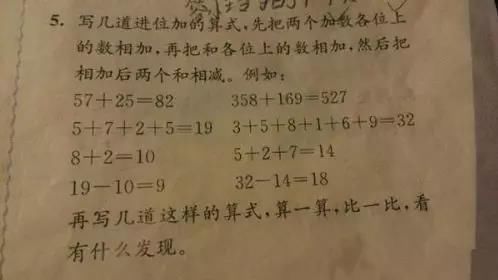 5. 写几道进位加的算式，先把两个加数各位上
的数相加，再把和各位上的数相加，然后把
相加后两个和相减。例如：
57＋25＝82 358＋169＝527
5＋7＋2＋5＝19 3＋5＋8＋1＋6＋9＝32
8＋2＝10 5＋2＋7＝14
19－10＝9 32－14＝18
再写几道这样的算式，算一算，比一比，看
有什么发现。